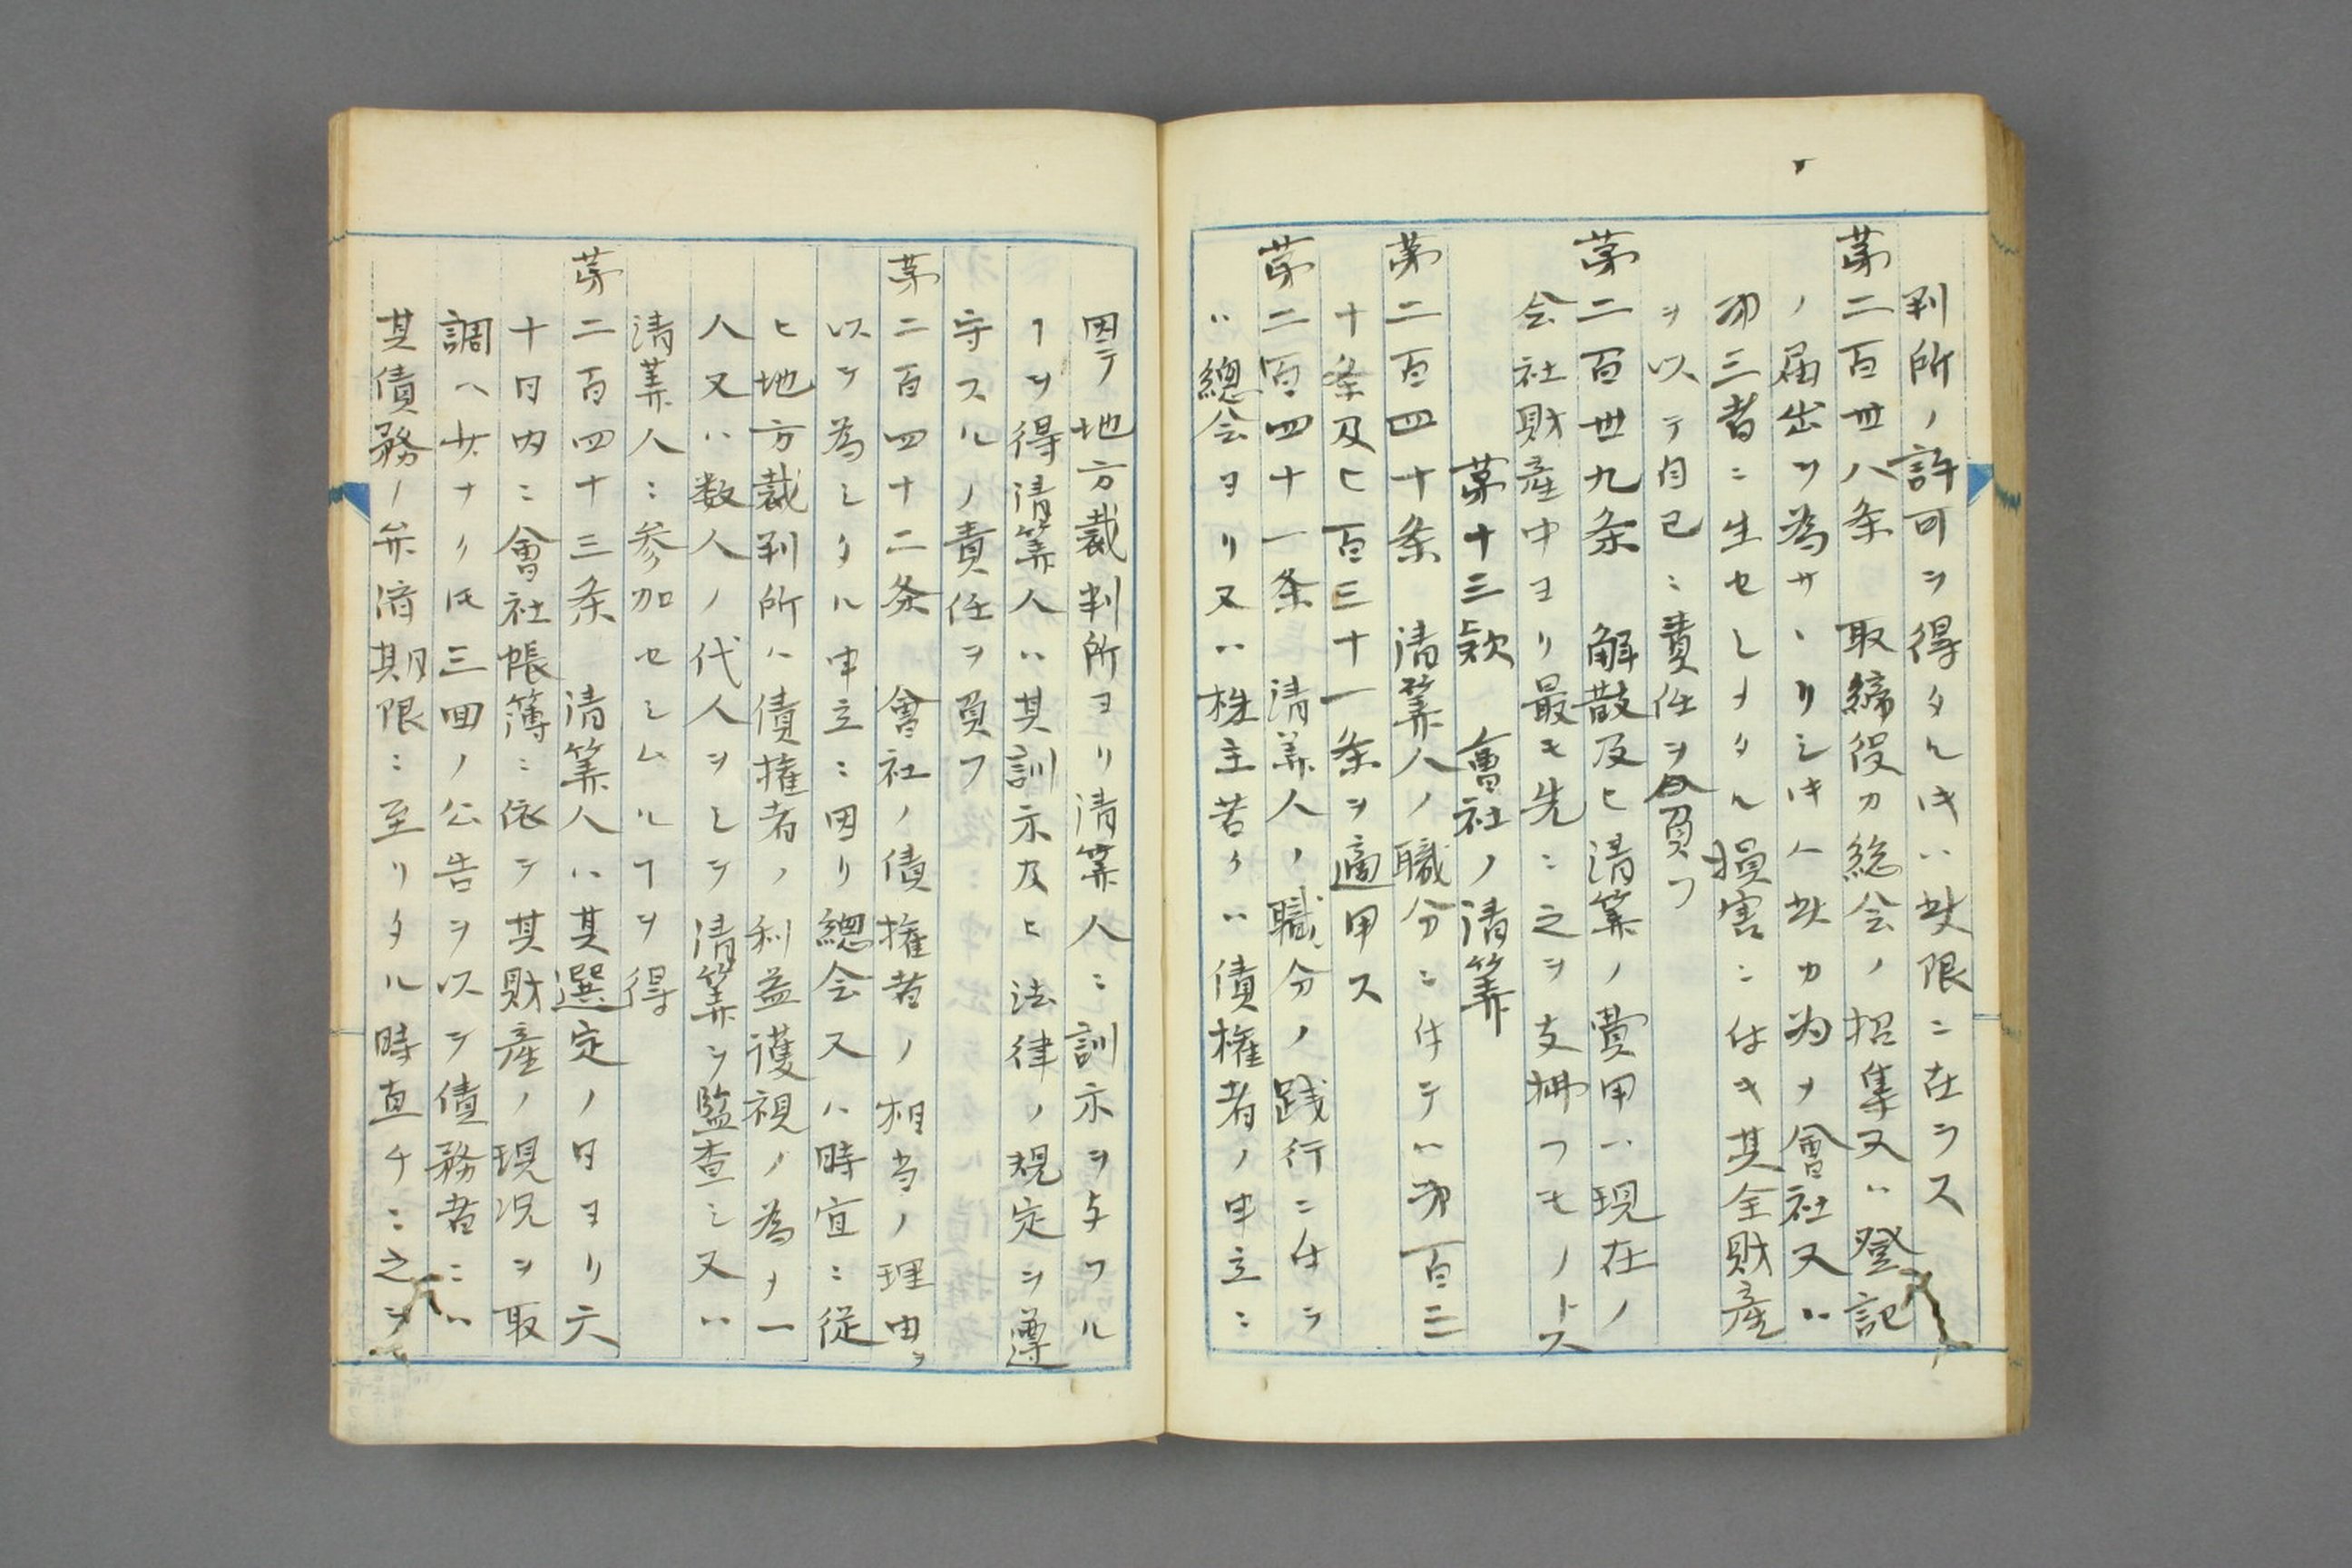 判所ノ許可ヲ得タルトキハ此限ニ在ラス
第二百卅八条 取締役カ総会ノ招集又ハ登記
ノ届出ヲ為サヽリシトキハ此カ為メ會社又ハ
第三者ニ生セシメタル損害ニ付キ其全財産
ヲ以テ自己ニ責任ヲ負フ
第二百卅九条 解散及ヒ清算ノ費用ハ現在ノ
会社財産中ヨリ最モ先ニ之ヲ支拂フモノトス
第十三款 會社ノ清算
第二百四十条 清算人ノ職分ニ付テハ第百三
十条及ヒ百三十一条ヲ適用ス
第二百四十一条 清算人ノ職分ノ践行ニ付テ
ハ總会ヨリ又ハ株主若クハ債権者ノ申立ニ
因テ地方裁判所ヨリ清算人ニ訓示ヲ与フル
ヿヲ得清算人ハ其訓示及ヒ法律ノ規定ヲ遵
守スルノ責任ヲ負フ
第二百四十二条 會社ノ債権者ノ相当ノ理由ヲ
以テ為シタル申立ニ因リ總会又ハ時宜ニ従
ヒ地方裁判所ハ債権者ノ利益護視ノ為メ一
人又ハ数人ノ代人ヲシテ清算ヲ監査シ又ハ
清算人ニ参加セシムルヿヲ得
第二百四十三条 清算人ハ其選定ノ日ヨリ六
十日内ニ會社帳簿ニ依テ其財産ノ現况ヲ取
調ヘ少ナクトモ三回ノ公告ヲ以テ債務者ニハ
其債務ノ弁済期限ニ至リタル時直チニ之ヲ